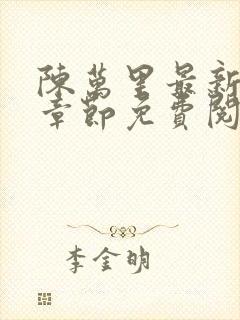 陳萬里最新
章節免費閱
李金明